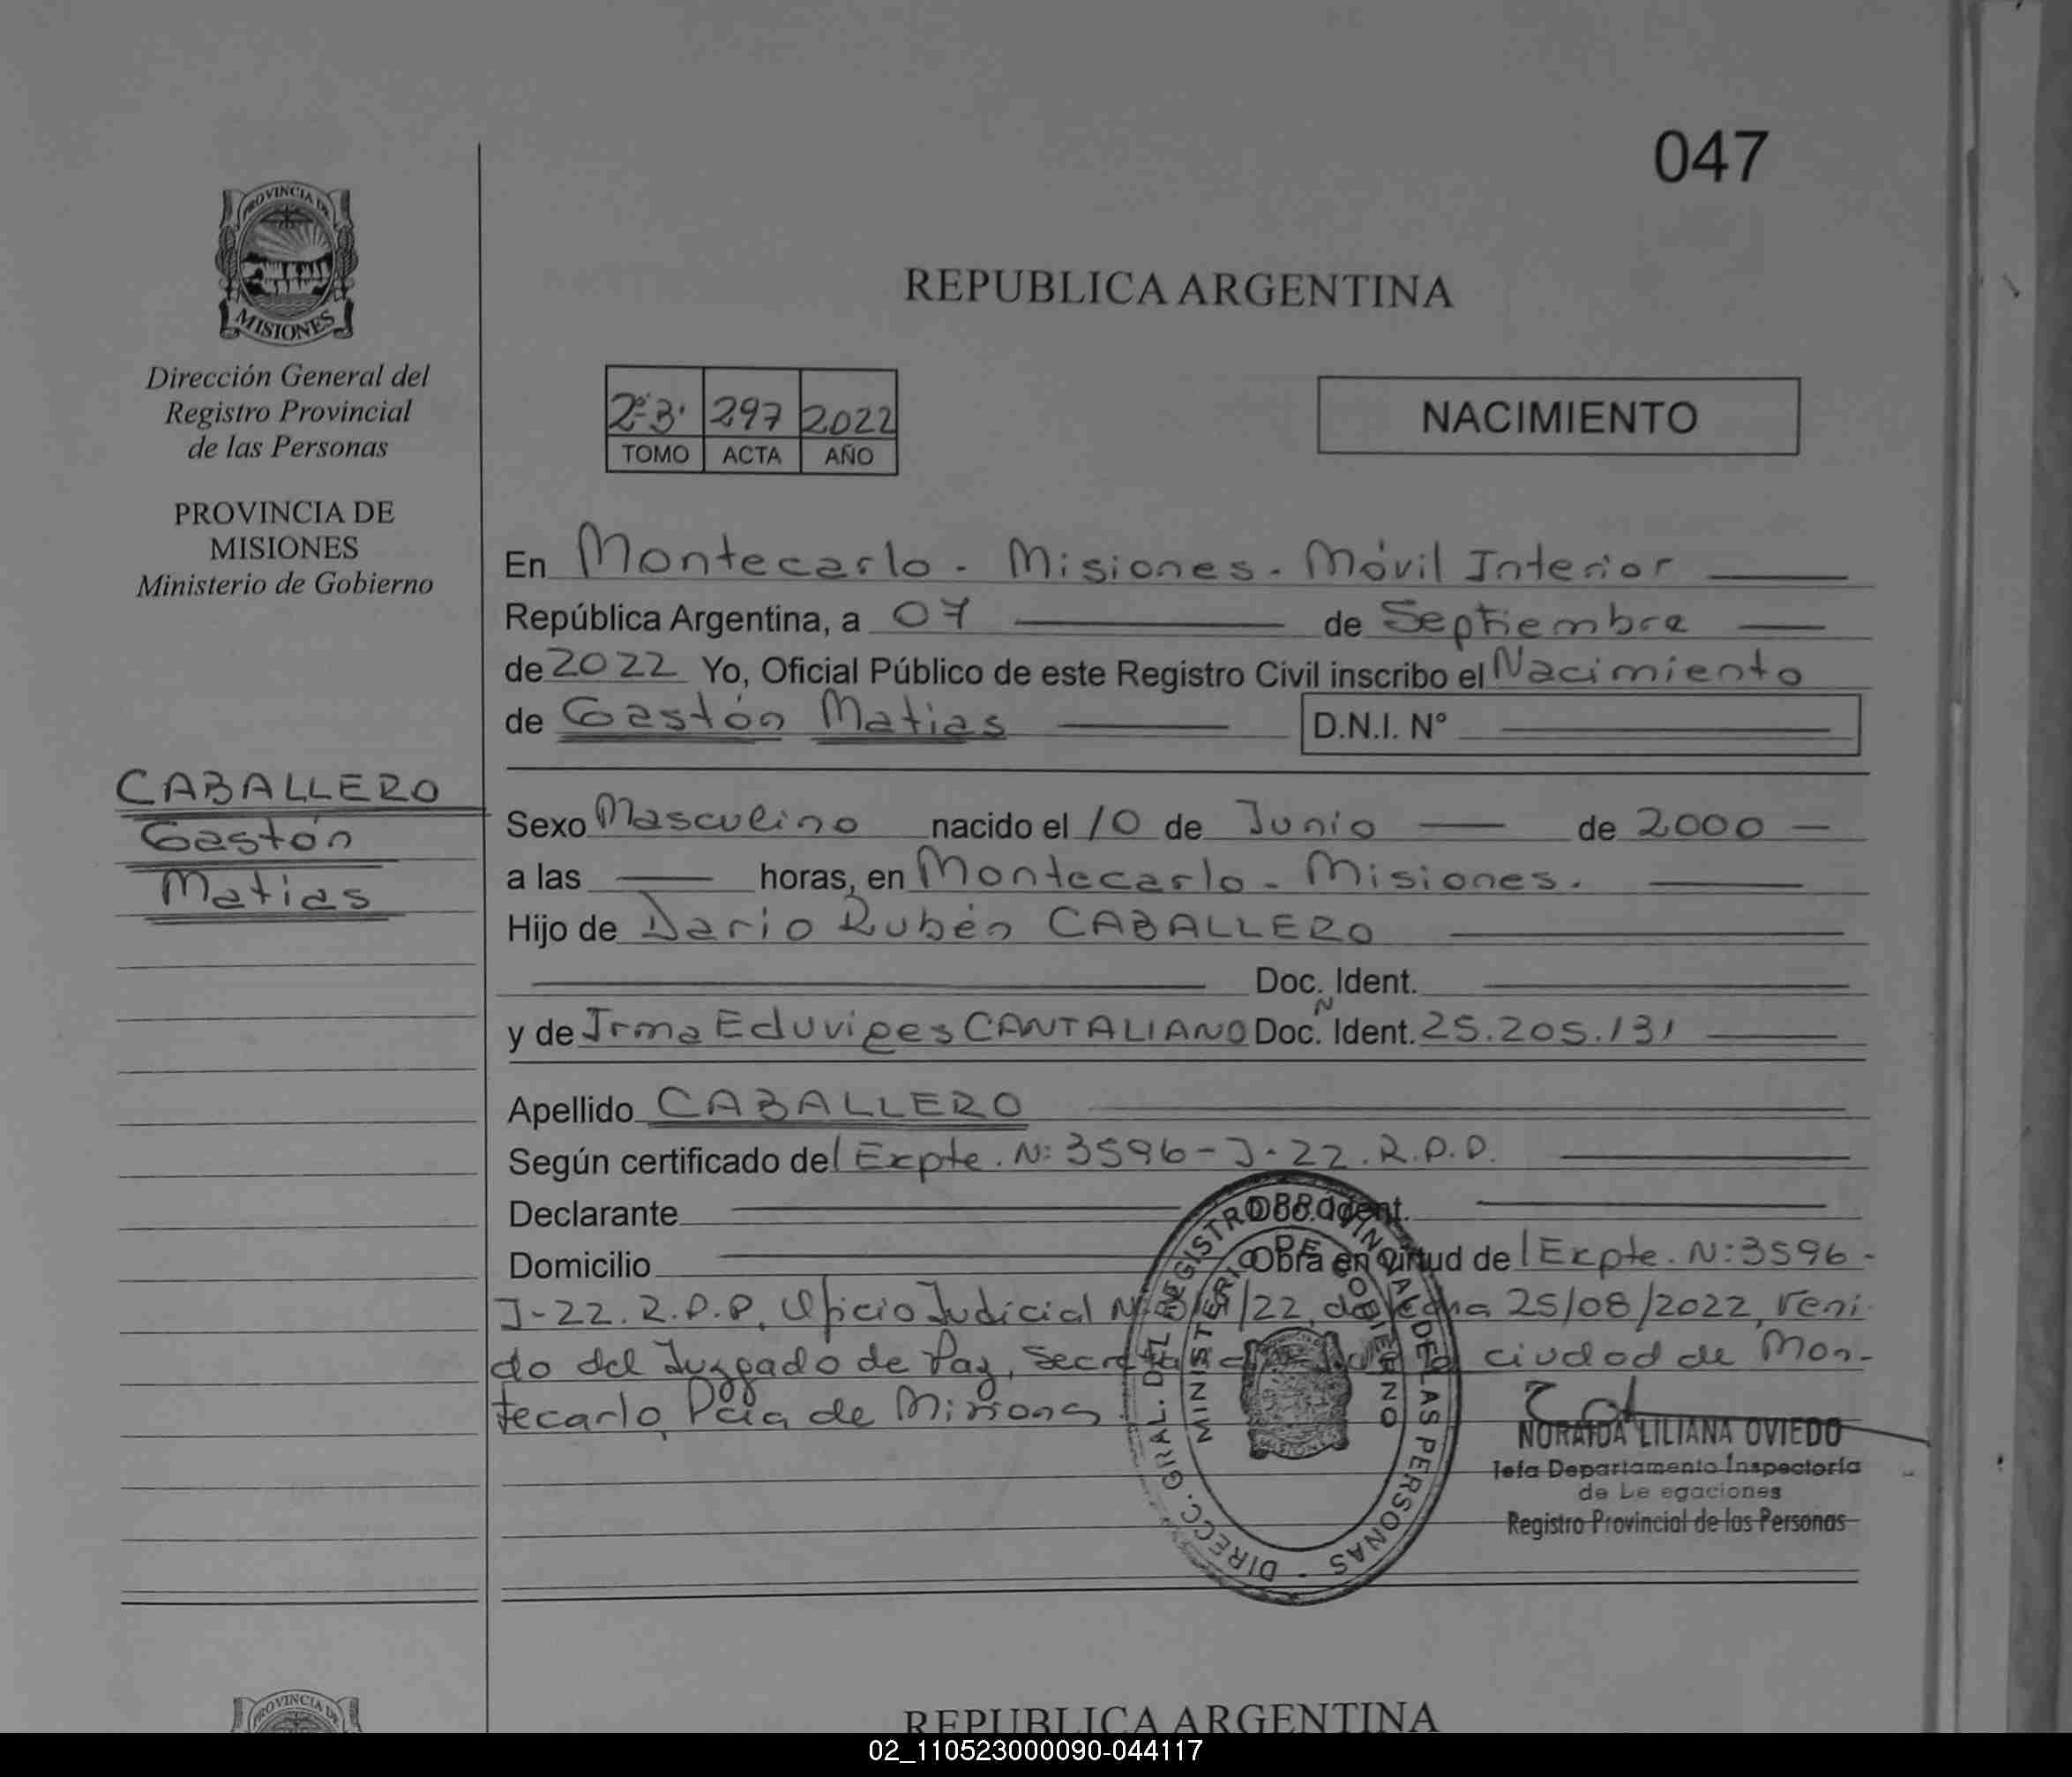 047
PROVINCIA DE
MISIONES
Dirección General del
Registro Provincial
de las Personas
PROVINCIA DE
MISIONES
Ministerio de Gobierno
CABALLERO
Gastón
Matias
REPUBLICA ARGENTINA
2º 3' 297 2022
TOMO ACTA AÑO
NACIMIENTO
En Montecarlo - Misiones - Móvil Interior
República Argentina, a 07 de Septiembre
de 2022 Yo, Oficial Público de este Registro Civil inscribo el Nacimiento
de Gastón Matias D.N.I. Nº
Sexo Masculino nacido el 10 de Junio de 2000
a las horas, en Montecarlo - Misiones.
Hijo de Dario Rubén CABALLERO
Doc. Ident.
y de Irma Eduviges CANTALIANO Doc. Ident. 25.205.131
Apellido CABALLERO
Según certificado del Expte. N: 3596-J-22.R.P.P.
Declarante Doc. Ident.
Domicilio Obra en virtud del Expte. N: 3596-
J-22.R.P.P, Oficio Judicial /22, de fecha 25/08/2022, veni-
do del Juzgado de Paz, ciudad de Mon-
tecarlo, Pcia de Misiones
DIRECC. GRAL. DEL REGISTRO PROVINCIAL DE LAS PERSONAS -
MINISTERIO DE GOBIERNO
NORAIDA LILIANA OVIEDO
Jefa Departamento Inspectoría
de Le egaciones
Registro Provincial de las Personas
PROVINCIA DE
REPUBLICA ARGENTINA
02_110523000090-044117